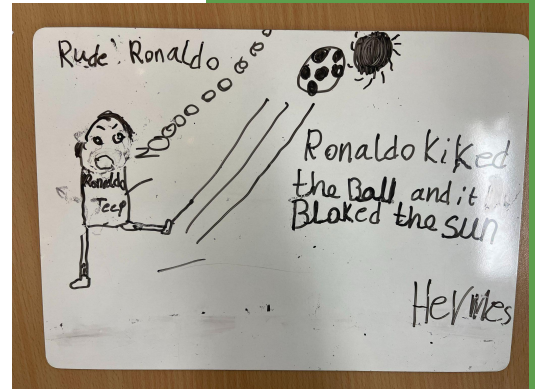 Rude Ronaldo
Ronaldo
Jeep
Ronaldo Kiked
the Ball and it
Bloked the sun
Hermes